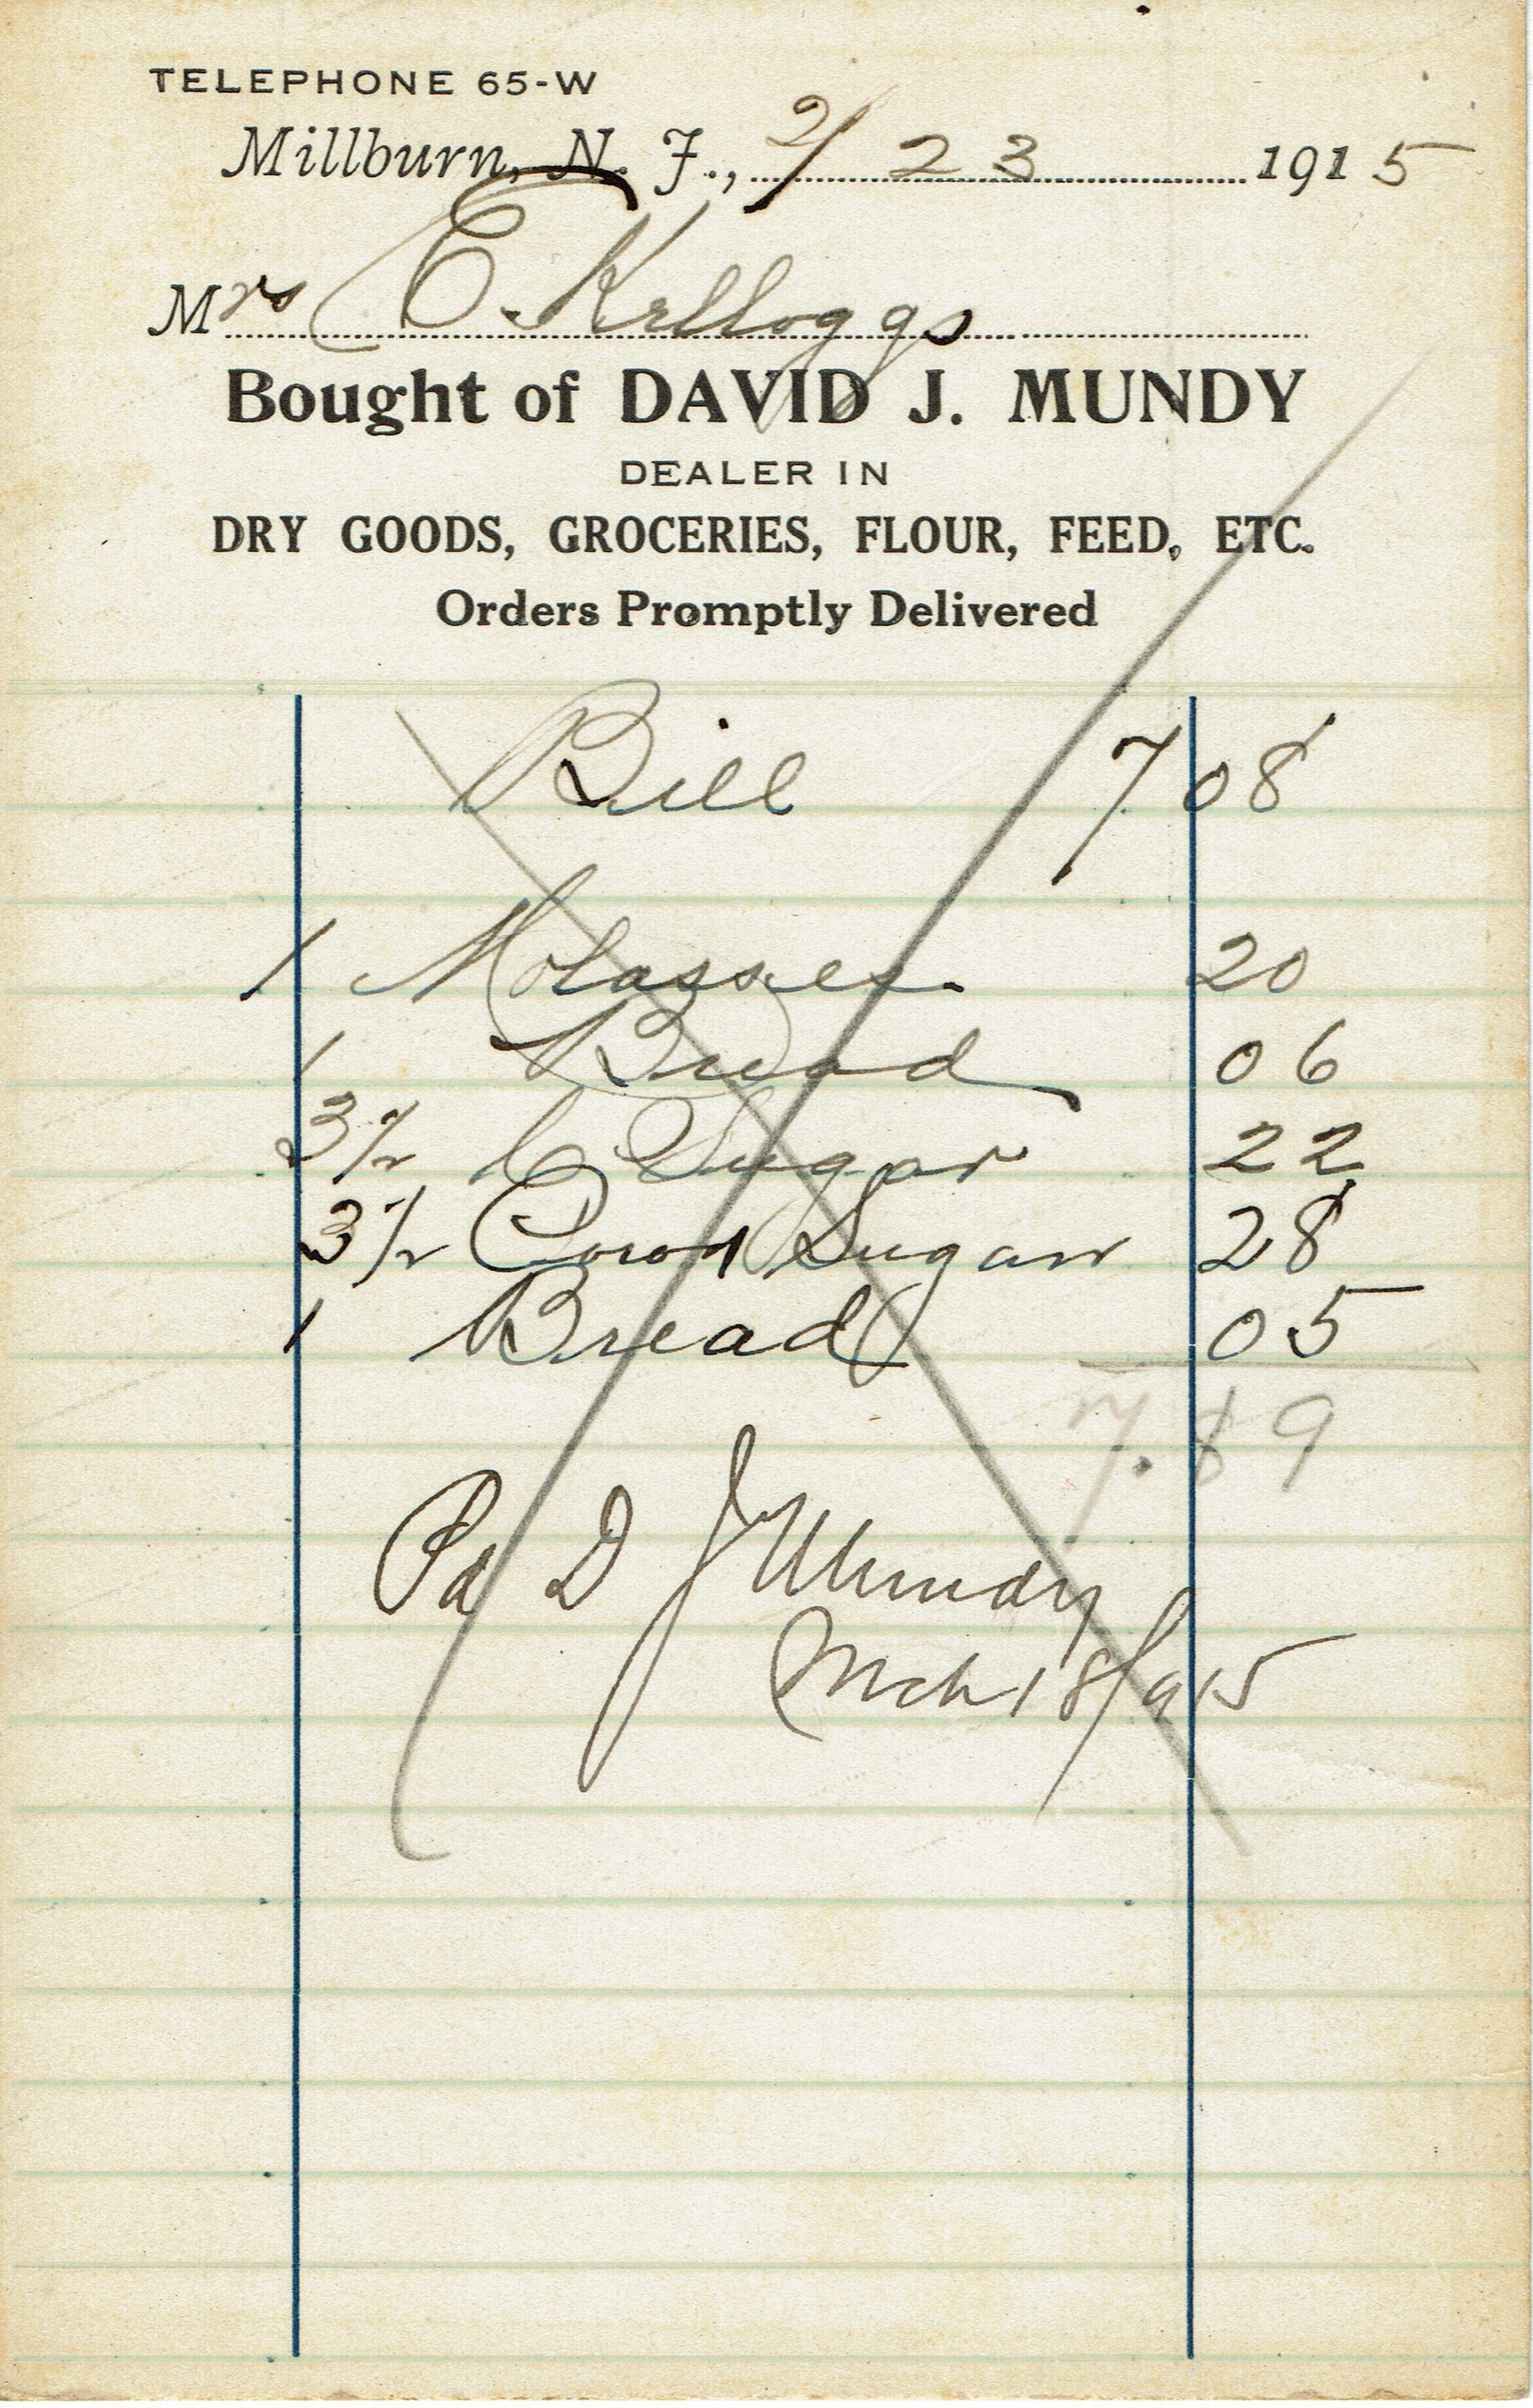 TELEPHONE 65-W
Millburn, N. J., 2/23 1915
Mrs E. Kelloggs
Bought of DAVID J. MUNDY
DEALER IN
DRY GOODS, GROCERIES, FLOUR, FEED, ETC.
Orders Promptly Delivered
Bill 7 08
1 Molasses. 20
1 Bread 06
3 1/2 C Sugar 22
3 1/2 Sugar 28
1 Bread 05
7.89
Pd D J Mundy
Mch 18/915